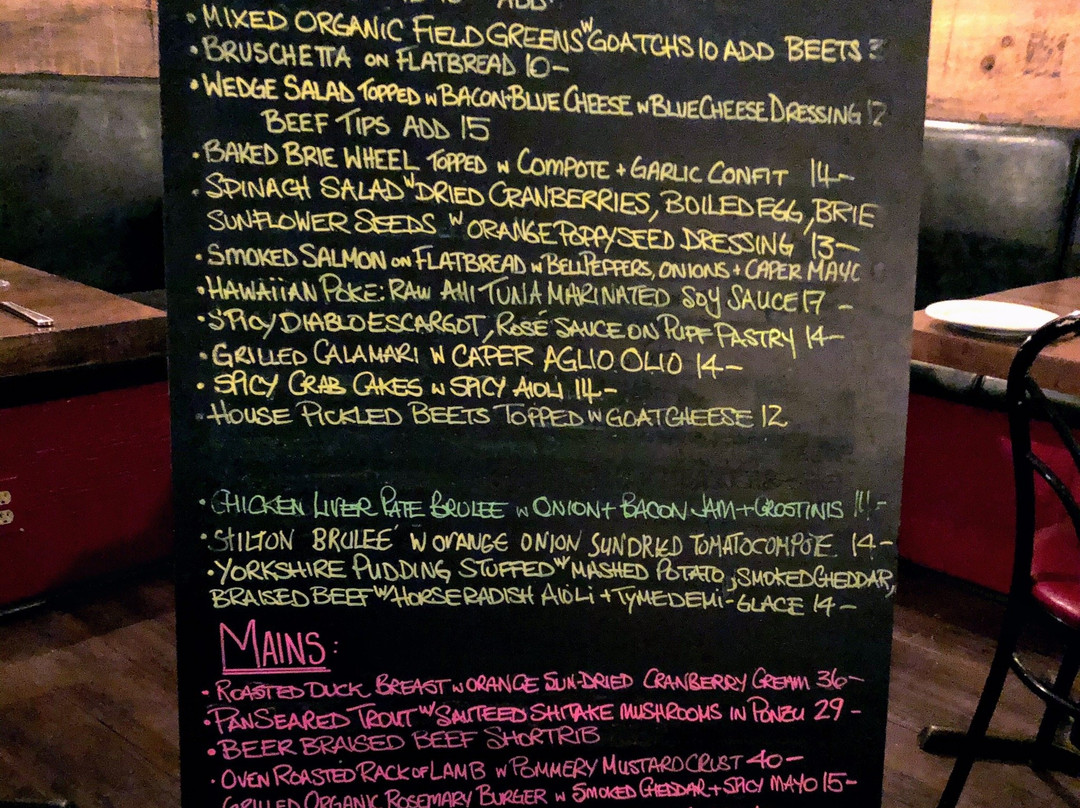 ADD
• MIXED ORGANIC FIELD GREENS W GOATCHS 10 ADD BEETS 3
• BRUSCHETTA ON FLATBREAD 10-
• WEDGE SALAD TOPPED W BACON+BLUE CHEESE W BLUE CHEESE DRESSING 12
BEEF TIPS ADD 15
• BAKED BRIE WHEEL TOPPED W COMPOTE + GARLIC CONFIT 14-
• SPINACH SALAD W DRIED CRANBERRIES, BOILED EGG, BRIE
SUNFLOWER SEEDS W ORANGE POPPYSEED DRESSING 13-
• SMOKED SALMON ON FLATBREAD W BELL PEPPERS, ONIONS + CAPER MAYO
• HAWAIIAN POKE: RAW AHI TUNA MARINATED SOY SAUCE 17 -
• SPICY DIABLO ESCARGOT, ROSÉ SAUCE ON PUFF PASTRY 14-
• GRILLED CALAMARI W CAPER AGLIO OLIO 14-
• SPICY CRAB CAKES W SPICY AIOLI 14-
• HOUSE PICKLED BEETS TOPPED W GOAT CHEESE 12
• CHICKEN LIVER PATE BRULEE W ONION + BACON JAM + CROSTINIS
• STILTON BRULEÉ W ORANGE ONION SUNDRIED TOMATO COMPOTE 14-
• YORKSHIRE PUDDING STUFFED W MASHED POTATO, SMOKED CHEDDAR,
BRAISED BEEF W HORSERADISH AIOLI + TYME DEMI-GLACE 14-
MAINS:
• ROASTED DUCK BREAST W ORANGE SUN-DRIED CRANBERRY CREAM 36-
• PAN SEARED TROUT W SAUTEED SHITAKE MUSHROOMS IN PONZU 29 -
• BEER BRAISED BEEF SHORTRIB
• OVEN ROASTED RACK OF LAMB W POMMERY MUSTARD CRUST 40-
GRILLED ORGANIC ROSEMARY BURGER W SMOKED CHEDDAR + SPICY MAYO 15-